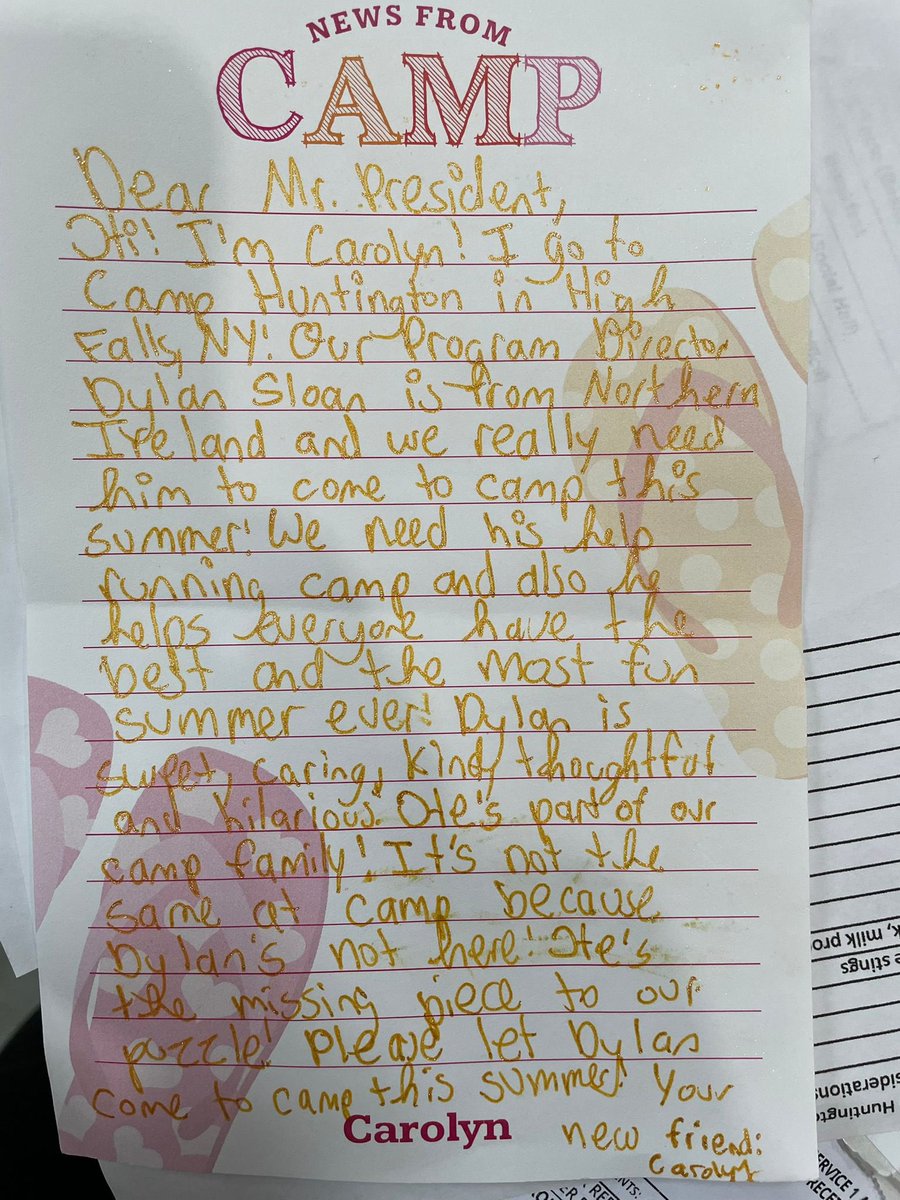 NEWS FROM
CAMP
Dear Mr. President,
Hi! I'm Carolyn! I go to
Camp Huntington in High
Falls, NY! Our Program Director
Dylan Sloan is from Northern
Ireland and we really need
him to come to camp this
summer! We need his help
running camp and also he
helps everyone have the
best and the most fun
summer ever! Dylan is
sweet, caring, kind, thoughtful
and hilarious. He's part of our
camp family! It's not the
same at camp because
Dylan's not here! He's
the missing piece to our
puzzle! Please let Dylan
come to camp this summer! Your
Carolyn
new friend:
Carolyn
k, milk pro
e stings
siderations
Huntingt
SERVICE 1 A
RECE